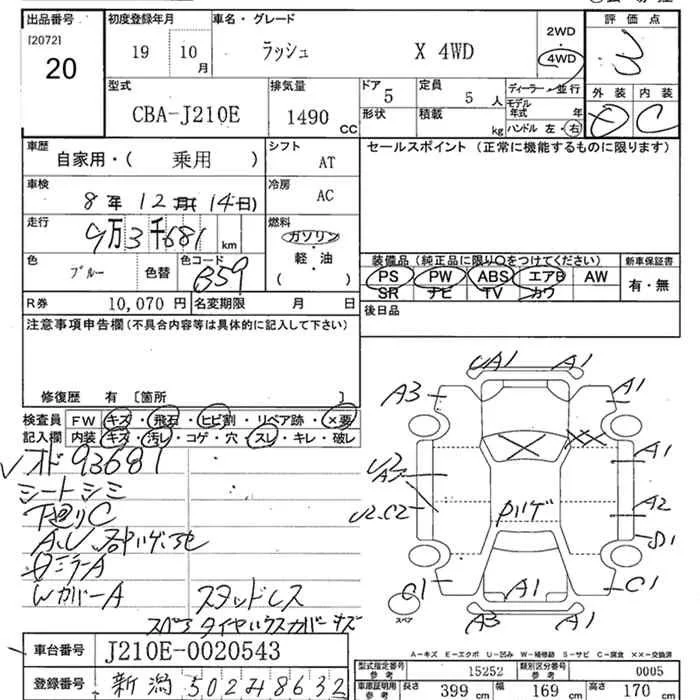 出品番号 初度登録年月 車名・グレード 2WD・4WD 評価点
[2072] 20
19 10月 ラッシュ X 4WD 3
型式 CBA-J210E 排気量 1490 CC ドア 5 定員 5人 ディーラー・並行 外装 内装
形状 積載 kg モデル年式 年 C
ハンドル 左・右
車歴 自家用・( 乗用 ) シフト AT セールスポイント (正常に機能するものに限ります)
車検 8年12月(14日) 冷房 AC
走行 9万3千681 km 燃料 ガソリン 軽・油 ( )
色 ブルー 色替 色コード B59
装備品(純正品に限り○をつけてください) 新車保証書
PS PW ABS エアB AW 有・無
SR ナビ TV カワ
R券 10,070円 名変期限 月 日 後日品
注意事項申告欄(不具合内容等は具体的に記入して下さい)
修復歴 有 [箇所 ]
検査員記入欄 FW キズ・飛石・ヒビ割・リペア跡・×要
内装 キズ・汚レ・コゲ・穴・スレ・キレ・破レ
オド93681
シートシミ
下廻りC
ミラーA
WカバーA スタッドレス
スペアタイヤハウスカバーキズ
UA1 A1
A3 A1
A1
U2.C2 A2
C1 A1 C1
A3 A1
スペア
A-キズ E-エクボ U-凹み W-補修跡 S-サビ C-腐食 ××-交換済
車台番号 J210E-0020543
登録番号 新潟 502 8632
型式指定番号 参考 15252 類別区分番号 参考 0005
車庫証明用 参考 長さ 399 cm 幅 169 cm 高さ 170 cm